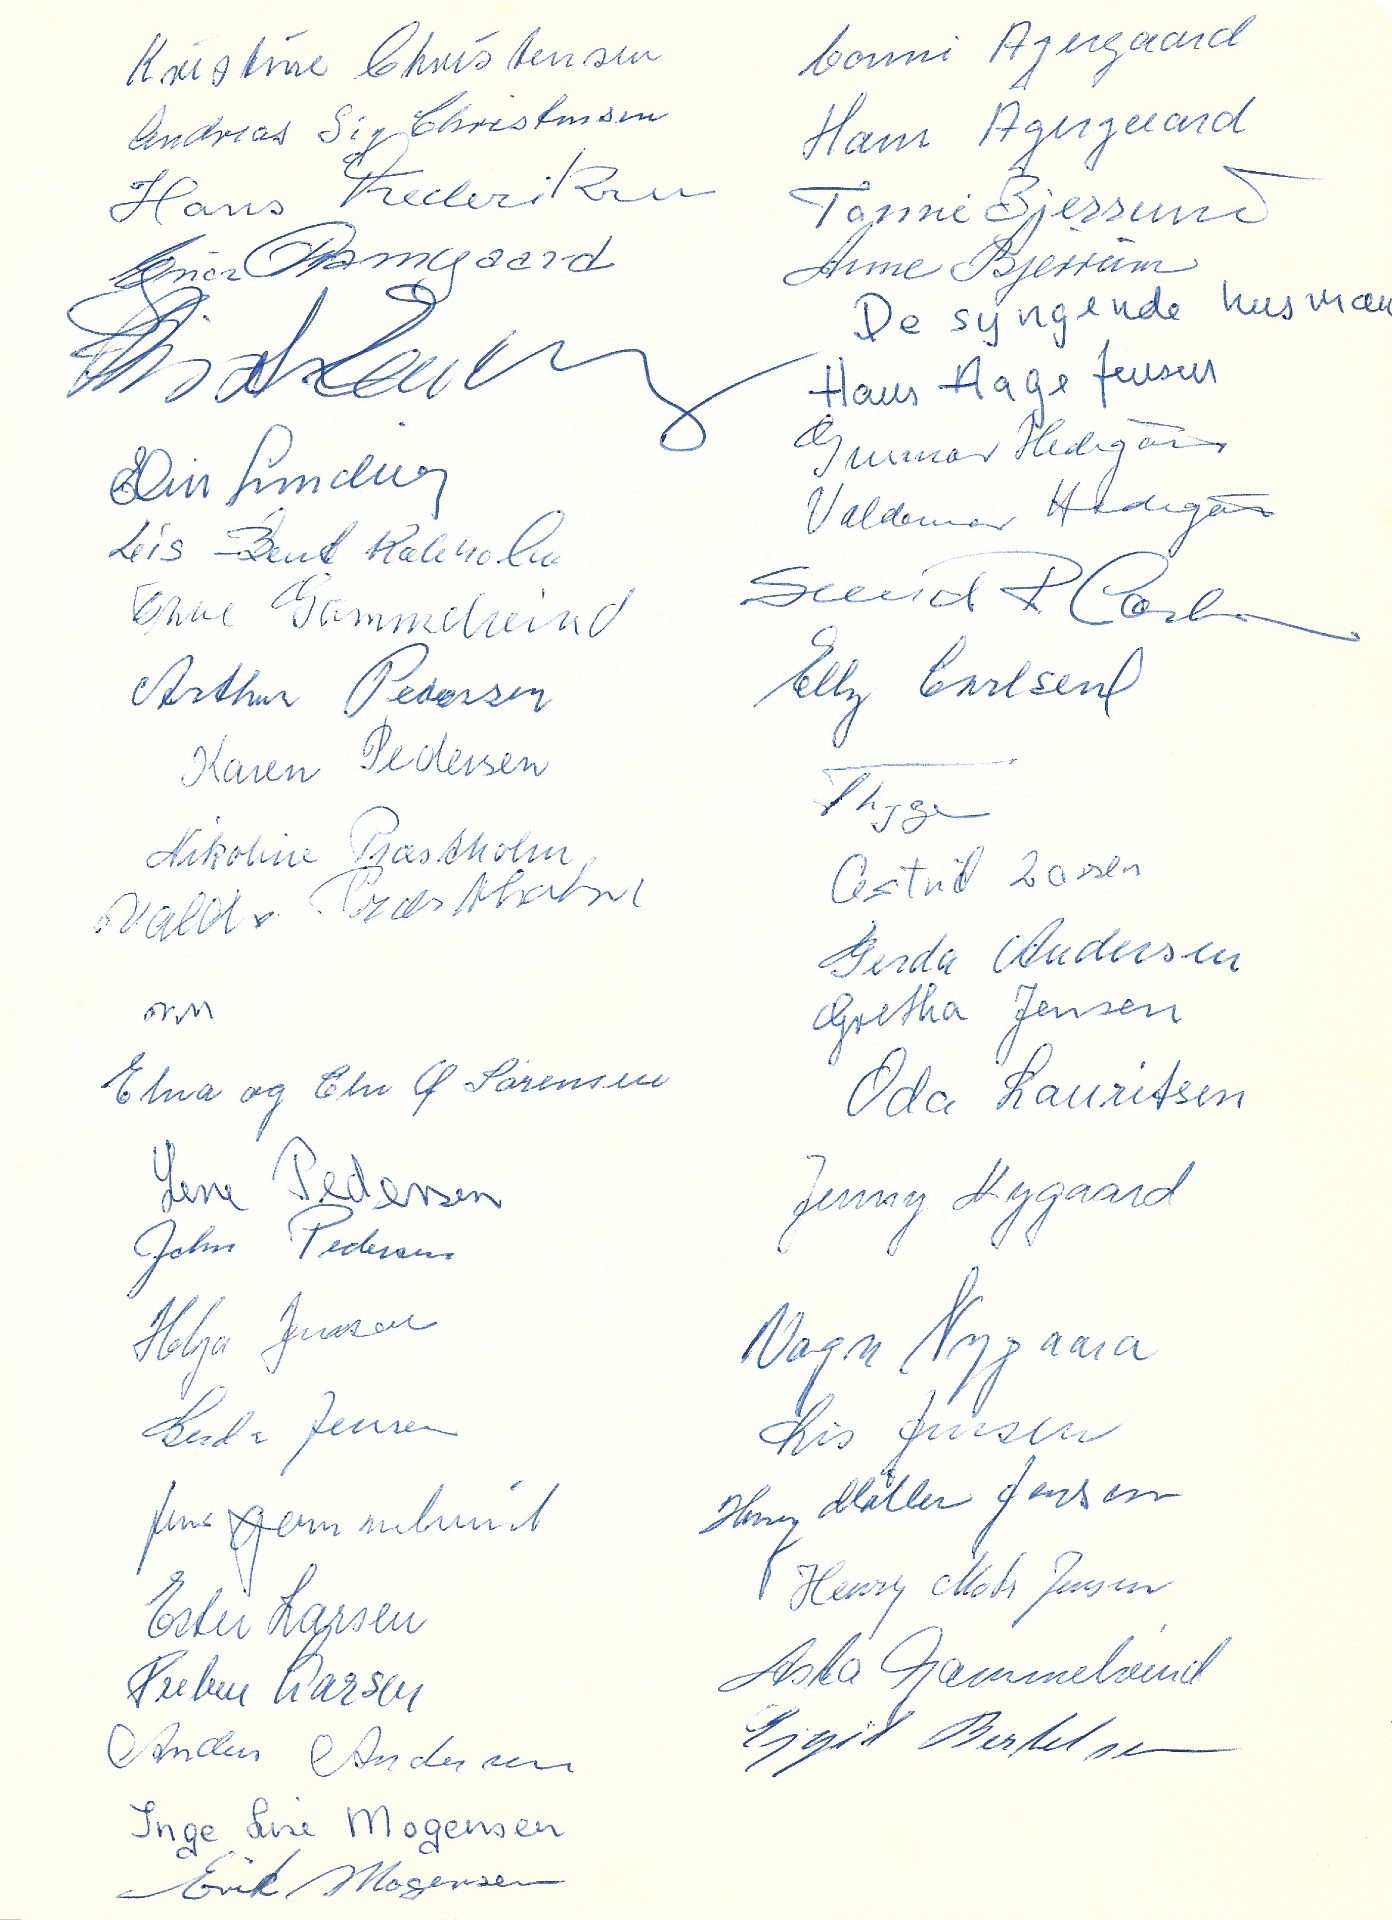 Kristine Christensen
Andreas Sig Christensen
Hans Frederiksen
Damgaard
Elin
Leis Bent
Gammelvind
Arthur Pedersen
Karen Pedersen
Nikoline Præstholm
Præstholm
Elna og Elv Sørensen
Lene Pedersen
John Pedersen
Helga Jensen
Gerda Jensen
Jens Gammelvind
Ester Larsen
Preben Larsen
Anders Andersen
Inge Lise Mogensen
Erik Mogensen
Conni Agergaard
Hans Agergaard
Tonni Bjerrum
Anne Bjerrum
De syngende husmæn
Hans Aage Jensen
Gunnar Hedegård
Valdemar Hedegård
Svend P Carlsen
Elly Carlsen
Thyge
Astrid Larsen
Gerda Andersen
Gretha Jensen
Oda Lauritsen
Jenny Nygaard
Vagn Nygaard
Lis Jensen
Henny Møller Jensen
Henry Jensen
Asta Gammelvind
Bertelsen